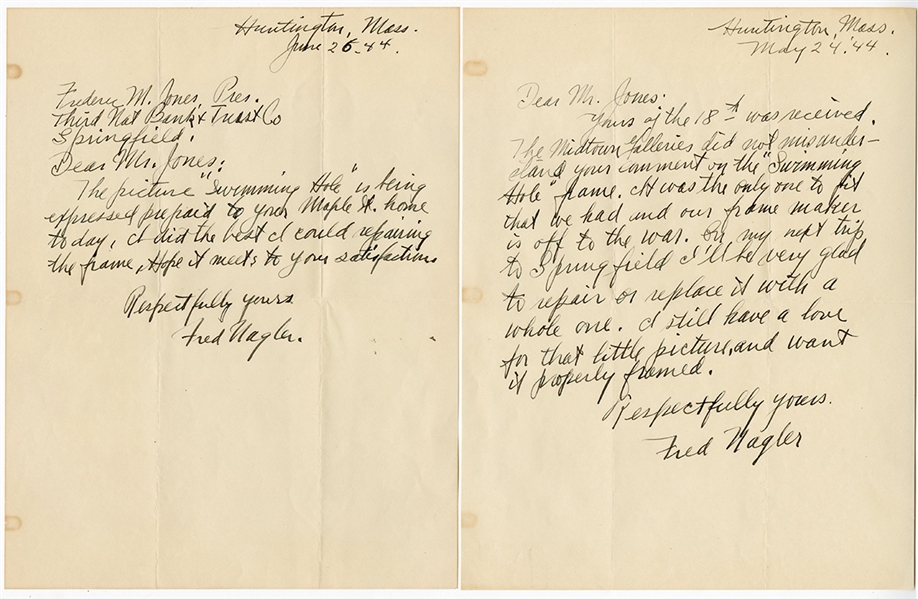 Huntington, Mass.
June 26. 44.
Frederic M. Jones, Pres.
Third Nat Bank & Trust Co
Springfield.
Dear Mr. Jones:
The picture "Swimming Hole" is being
expressed prepaid to your Maple St. home
today, I did the best I could repairing
the frame, Hope it meets to your satisfactions
Respectfully yours
Fred Nagler.
Huntington, Mass.
May 24.'44.
Dear Mr. Jones:
Yours of the 18th was received.
The Midtown Galleries did not misunder-
stand your comment on the "Swimming
Hole" frame. It was the only one to fit
that we had and our frame maker
is off to the war. On my next trip
to Springfield I'll be very glad
to repair or replace it with a
whole one. I still have a love
for that little picture, and want
it properly framed.
Respectfully yours.
Fred Nagler